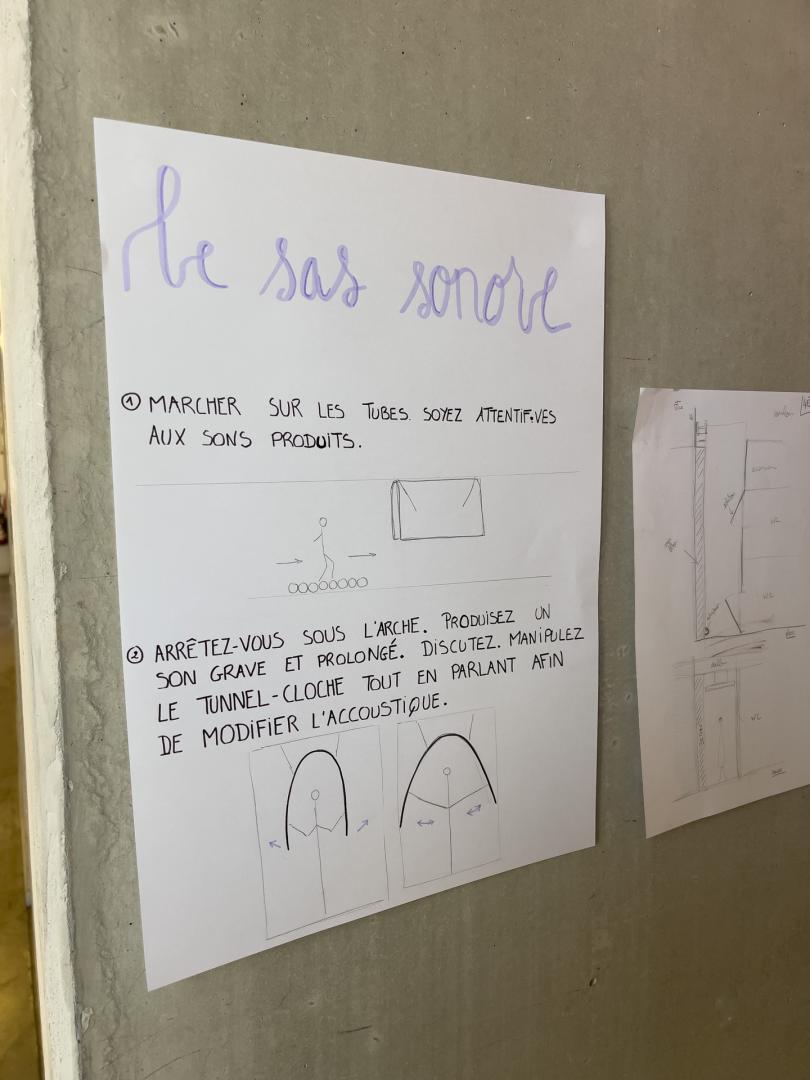 Le sas sonore
① MARCHER SUR LES TUBES. SOYEZ ATTENTIF•VES
AUX SONS PRODUITS.
② ARRÊTEZ-VOUS SOUS L'ARCHE. PRODUISEZ UN
SON GRAVE ET PROLONGÉ. DISCUTEZ. MANIPULEZ
LE TUNNEL-CLOCHE TOUT EN PARLANT AFIN
DE MODIFIER L'ACCOUSTIQUE.